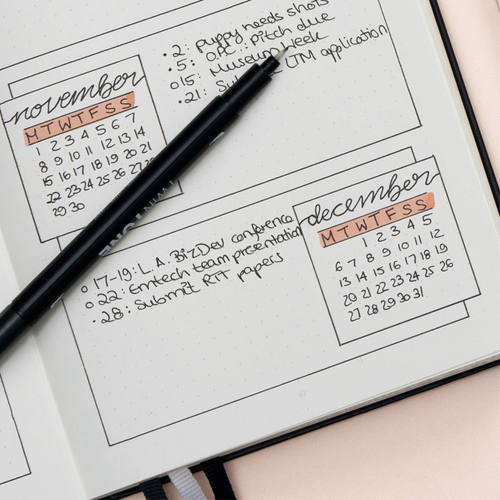 • 2: puppy needs shots
• 5: pitch due
o 15: Museum Week
• 21: application
november
M T W T F S S
1 2 3 4 5 6 7
8 9 10 11 12 13 14
15 16 17 18 19 20 21
22 23 24 25 26 27
29 30
o 17-19: L.A. BizDev conference
o 22: Emtech team presentation
• 28: Submit RTT papers
december
M T W T F S S
1 2 3 4 5
6 7 8 9 10 11 12
13 14 15 16 17 18 19
20 21 22 23 24 25 26
27 28 29 30 31